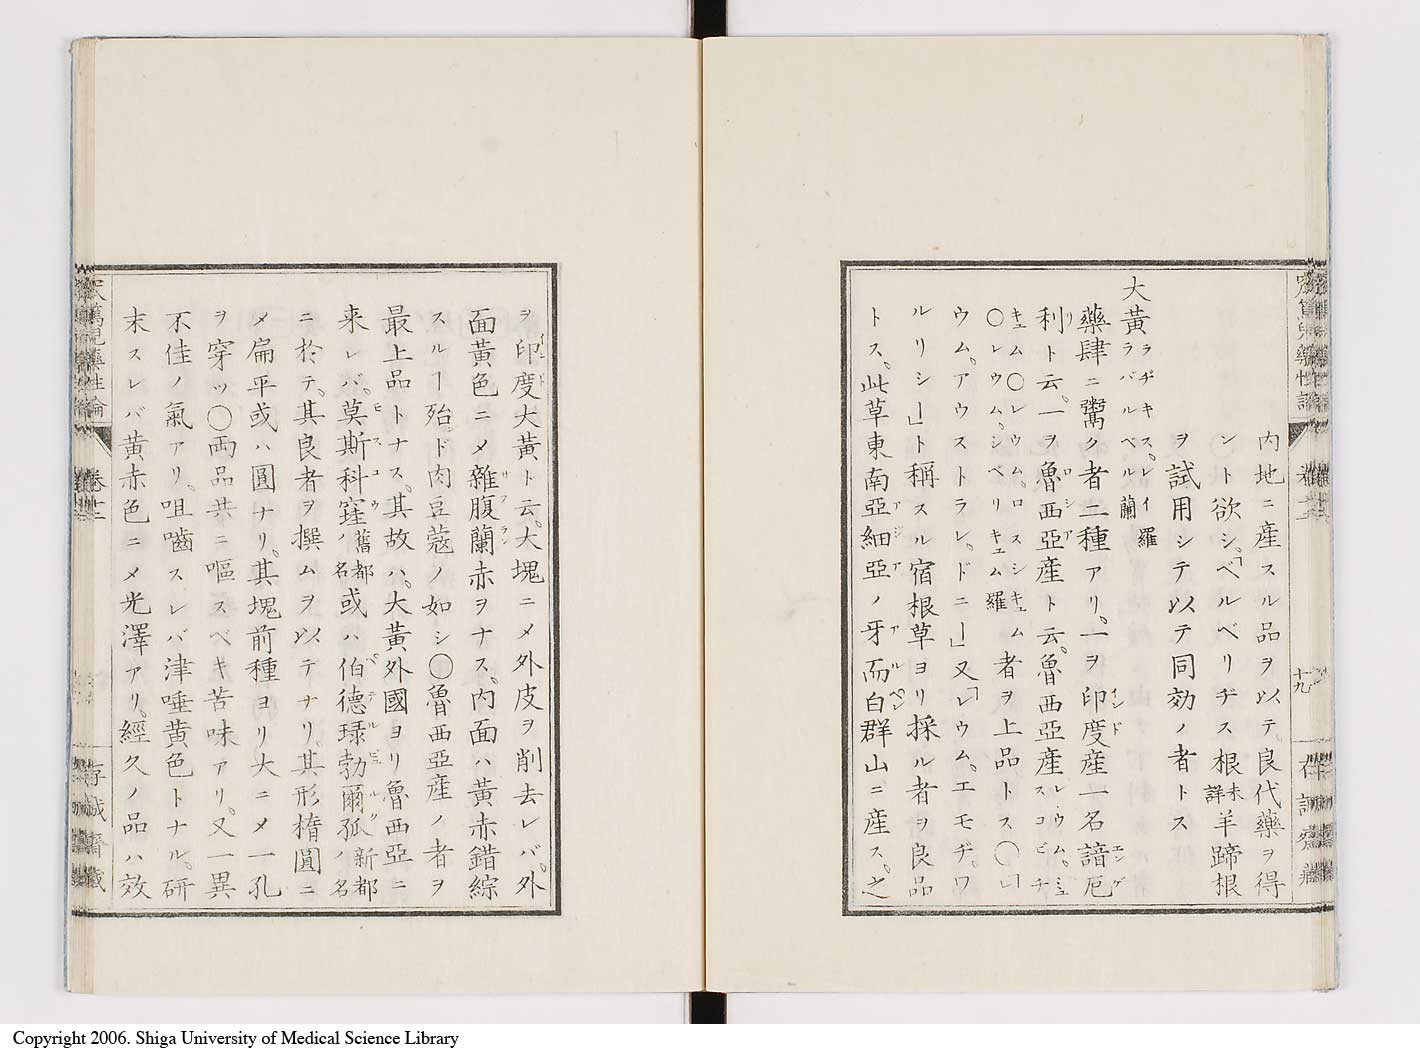 内地ニ産スル品ヲ以テ良代藥ヲ得
ント欲シ「ベルベリヂス根未詳羊蹄根
ヲ試用シテ以テ同効ノ者トス
大黃ラヂキス、レイ羅
ラバルベル蘭
藥肆ニ鬻ク者二種アリ。一ヲ印度産一名諳厄
利ト云。一ヲ魯西亞産ト云。魯西亞産レウム、ミュスコビチ
キュム〇レウム。ロスシキュム
〇レウム。シベリキュム羅者ヲ上品トス〇「レ
ウム。アウストラレ。ドニー」又「レウム。エモヂ。ワ
ルリシー」ト稱スル宿根草ヨリ採ル者ヲ良品
トス。此草東南亞細亞ノ牙而白群山ニ産ス。之
宋篤兒藥性論 卷十二 十九 存誠齋藏
ヲ印度大黃ト云。大塊ニメ外皮ヲ削去レバ。外
面黃色ニメ雜腹蘭赤ヲナス。内面ハ黃赤錯綜
スルー殆ド肉豆蔻ノ如シ〇魯西亞産ノ者ヲ
最上品トナス。其故ハ。大黃外國ヨリ魯西亞ニ
来レバ。莫斯科窪ノ舊都名或ハ伯德琭勃爾孤新都ノ名
ニ於テ。其良者ヲ撰ムヲ以テナリ。其形橢圓ニ
メ扁平或ハ圓ナリ。其塊前種ヨリ大ニメ一孔
ヲ穿ツ〇両品共ニ嘔スベキ苦味アリ。又一異
不佳ノ氣アリ。咀嚼スレバ津唾黃色トナル。研
末スレバ黃赤色ニメ光澤アリ。經久ノ品ハ效
宋篤兒藥性論 卷十二 存誠齋藏
Copyright 2006. Shiga University of Medical Science Library